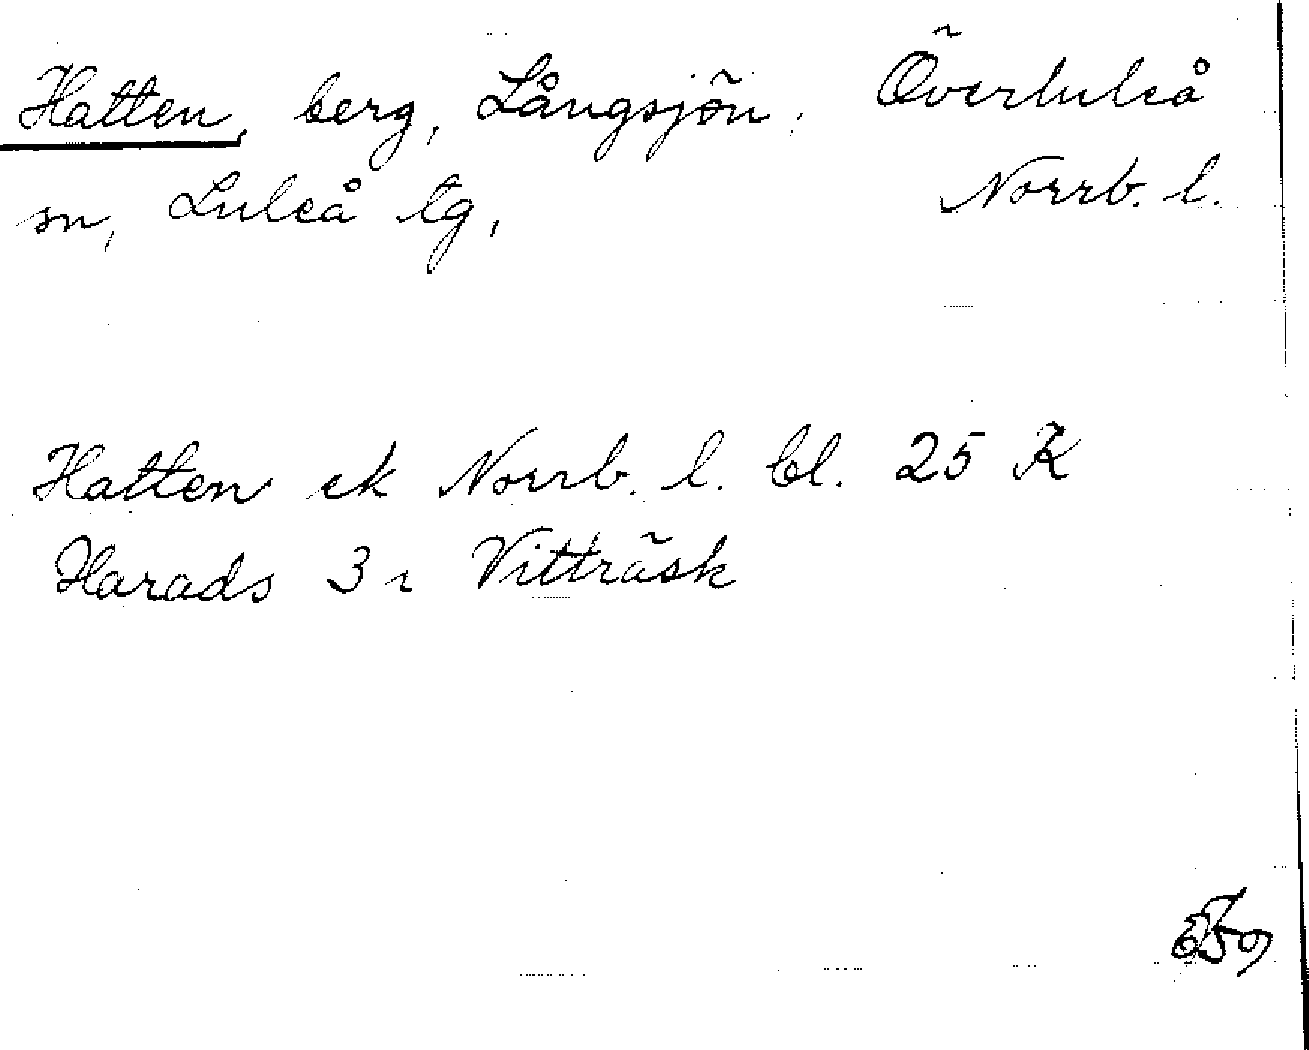 Hatten, berg, Långsjön, Överluleå
sn, Luleå tg, Norrb. l.
Hatten ek Norrb. l. bl. 25 K
Harads 3 r Vitträsk